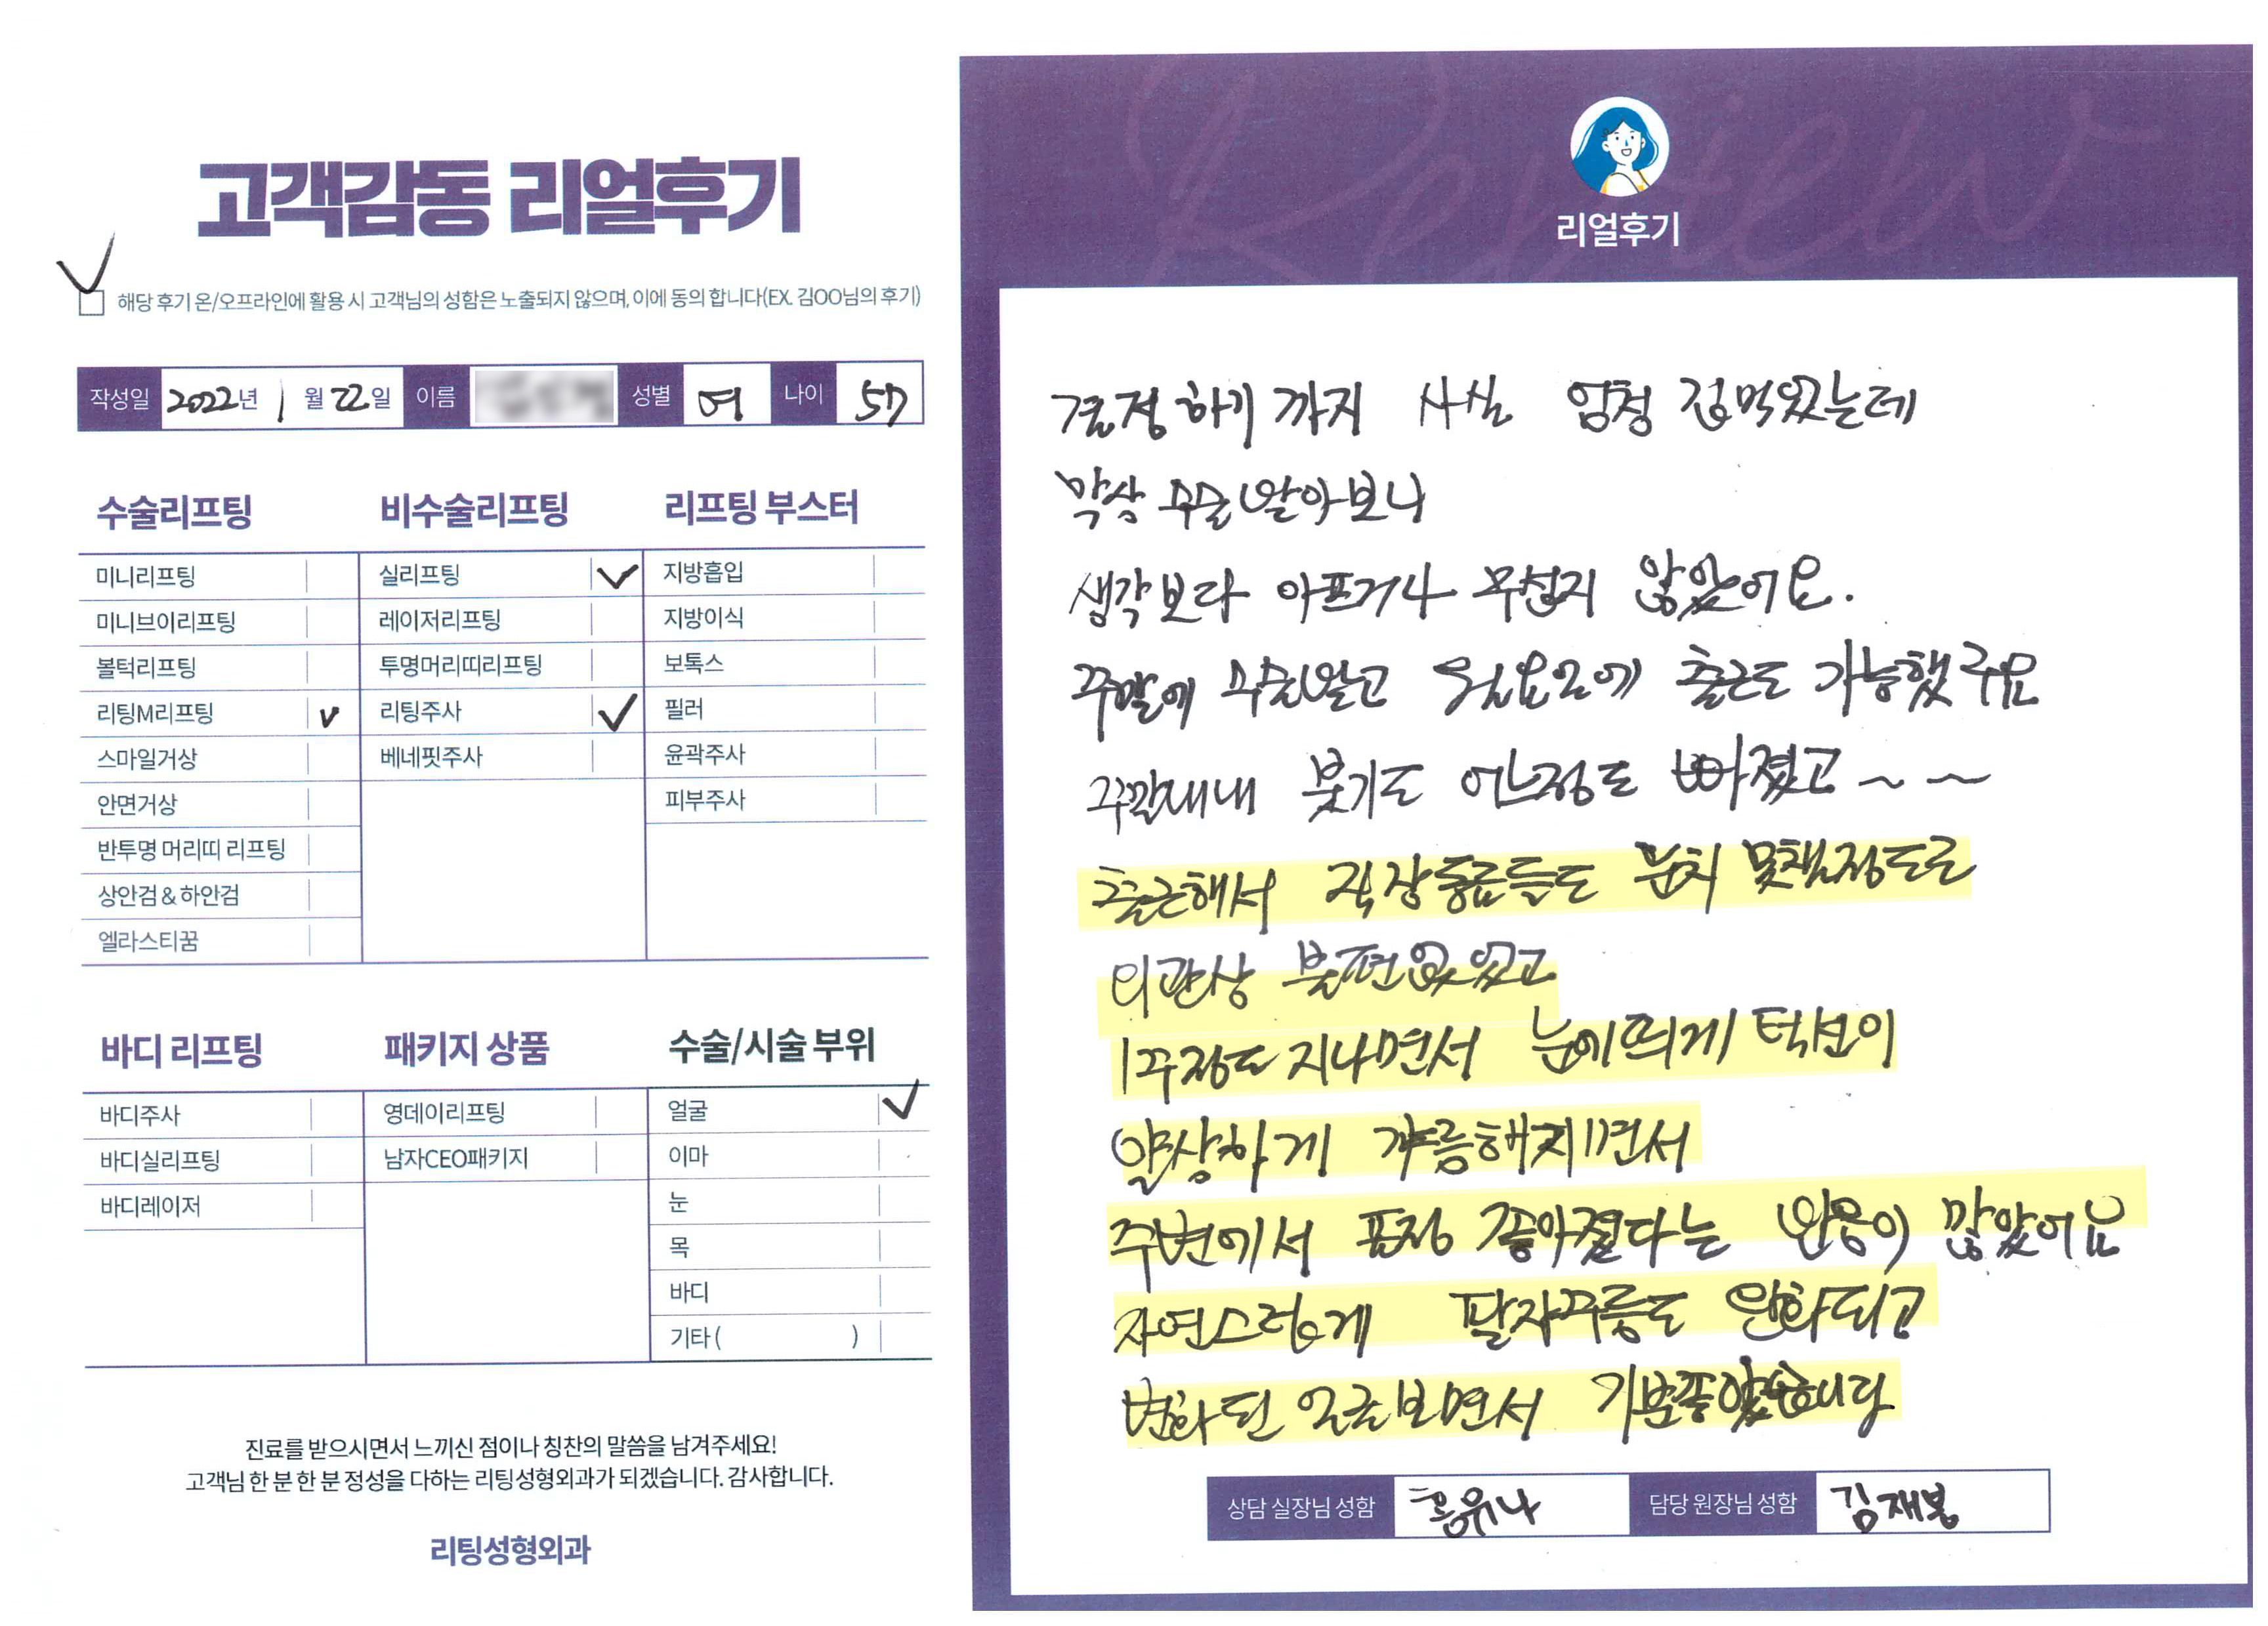 고객감동 리얼후기
해당 후기 온/오프라인에 활용 시 고객님의 성함은 노출되지 않으며, 이에 동의 합니다(EX. 김OO님의 후기)
작성일 2022년 1월 22일 이름 성별 여 나이 57
수술리프팅
미니리프팅
미니브이리프팅
볼턱리프팅
리팅M리프팅
스마일거상
안면거상
반투명 머리띠 리프팅
상안검 & 하안검
엘라스티꿈
비수술리프팅
실리프팅
레이저리프팅
투명머리띠리프팅
리팅주사
베네핏주사
리프팅 부스터
지방흡입
지방이식
보톡스
필러
윤곽주사
피부주사
바디 리프팅
바디주사
바디실리프팅
바디레이저
패키지 상품
영데이리프팅
남자CEO패키지
수술/시술 부위
얼굴
이마
눈
목
바디
기타 ( )
진료를 받으시면서 느끼신 점이나 칭찬의 말씀을 남겨주세요!
고객님 한 분 한 분 정성을 다하는 리팅성형외과가 되겠습니다. 감사합니다.
리팅성형외과
Review
리얼후기
결정하기 까지 사실 엄청 겁먹었는데
막상 수술받아보니
생각보다 아프거나 무섭지 않았어요.
주말에 수술받고 월요일에 출근도 가능했구요
주말내내 붓기도 어느정도 빠졌고~~
출근해서 직장동료들도 눈치 못챌정도로
외관상 불편없었고
1주정도 지나면서 눈에띄게 턱선이
얄상하게 갸름해지면서
주변에서 표정 좋아졌다는 반응이 많았어요
자연스럽게 팔자주름도 완화되고
변화된 얼굴보면서 기분좋았습니다
상담 실장님 성함 홍유나 담당 원장님 성함 김재봉